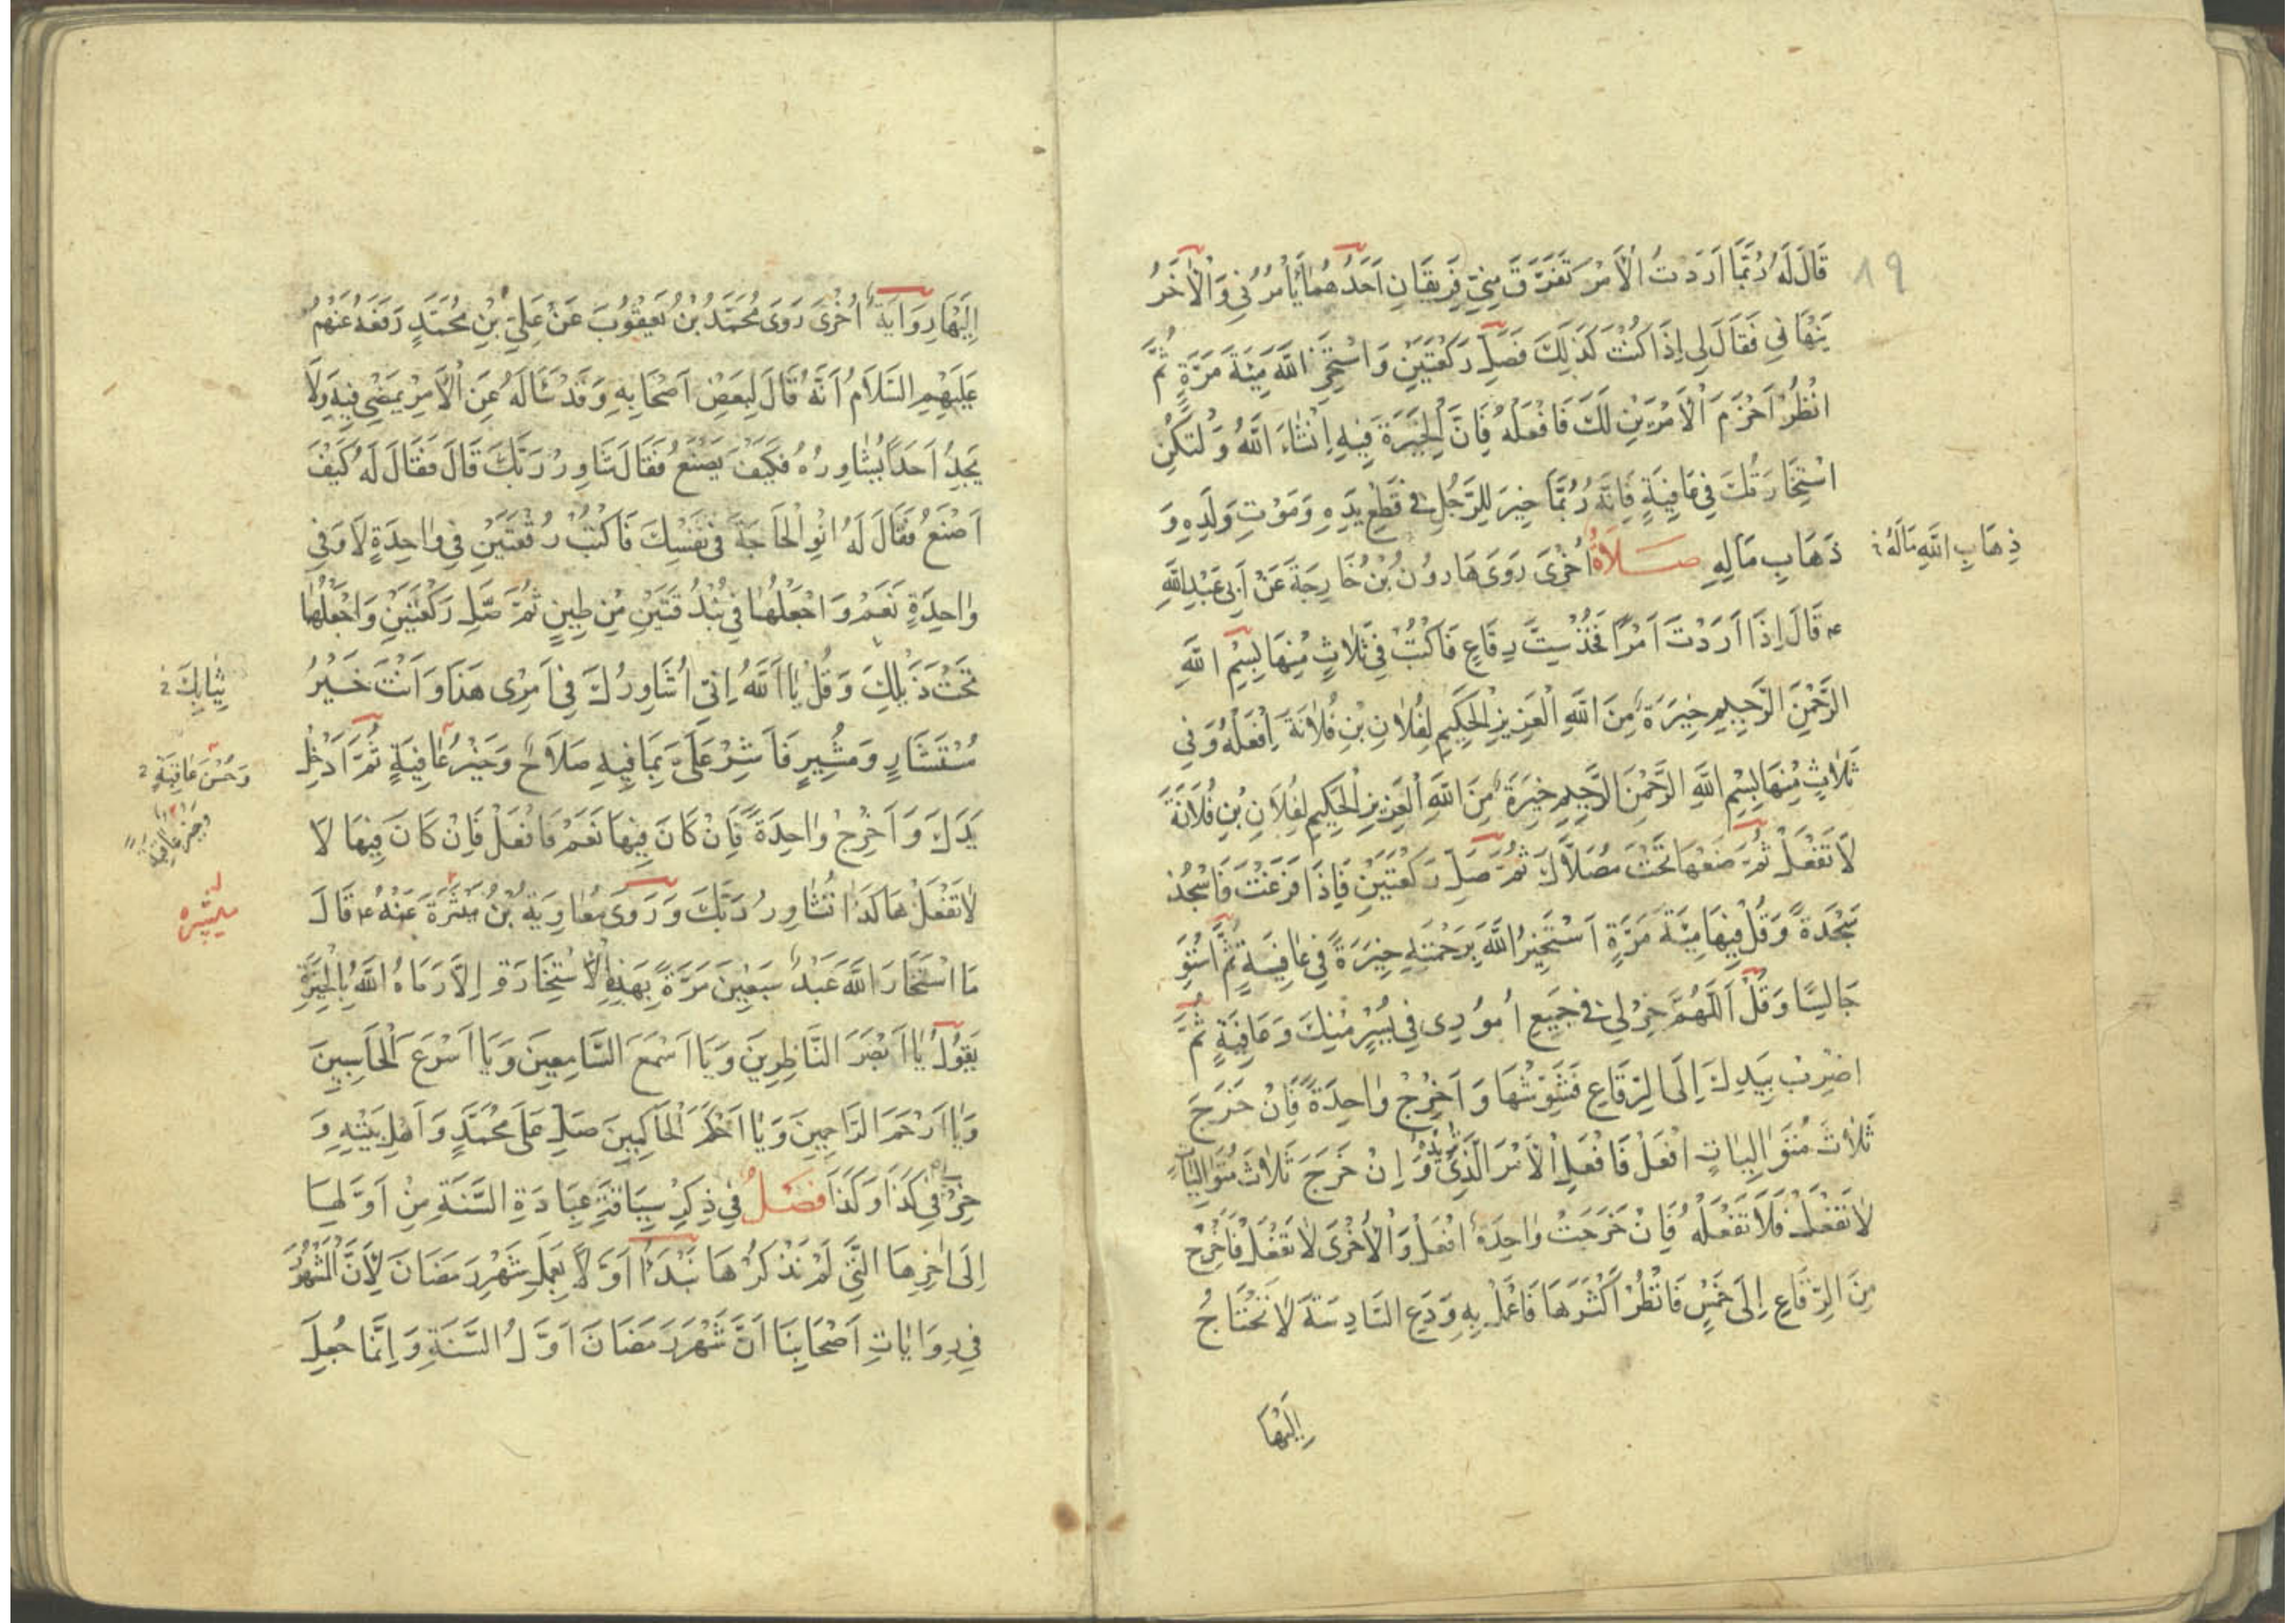 ٨٩
قَالَ لَهُ رُبَّمَا اَرَدْتُ الْاَمْرَ تَفَرَّقَ مِنِّي فَرِيقَانِ اَحَدُهُمَا يَأْمُرُنِي وَالْاٰخَرُ
يَنْهَانِي فَقَالَ لِي اِذَا كُنْتَ كَذَلِكَ فَصَلِّ رَكْعَتَيْنِ وَاسْتَخِرِ اللّٰهَ مِئَةَ مَرَّةٍ ثُمَّ
انْظُرْ اَحْزَمَ الْاَمْرَيْنِ لَكَ فَافْعَلْهُ فَاِنَّ الْخِيَرَةَ فِيهِ اِنْشَاءَ اللّٰهُ وَلْتَكُنِ
اسْتِخَارَتُكَ فِي عَافِيَةٍ فَاِنَّهُ رُبَّمَا خِيرَ لِلرَّجُلِ فِي قَطْعِ يَدِهِ وَمَوْتِ وَلَدِهِ وَ
ذَهَابِ مَالِهِ صَلَاةٌ اُخْرَى رَوَى هَارُونُ بْنُ خَارِجَةَ عَنْ اَبِي عَبْدِ اللّٰهِ
ذِهَابِ اللّٰهِ مَالَهُ
ع قَالَ اِذَا اَرَدْتَ اَمْرًا فَخُذْ سِتَّ رِقَاعٍ فَاكْتُبْ فِي ثَلَاثٍ مِنْهَا بِسْمِ اللّٰهِ
الرَّحْمٰنِ الرَّحِيمِ خِيَرَةً مِنَ اللّٰهِ الْعَزِيزِ الْحَكِيمِ لِفُلَانِ بْنِ فُلَانَةَ اِفْعَلْهُ وَفِي
ثَلَاثٍ مِنْهَا بِسْمِ اللّٰهِ الرَّحْمٰنِ الرَّحِيمِ خِيَرَةً مِنَ اللّٰهِ الْعَزِيزِ الْحَكِيمِ لِفُلَانِ بْنِ فُلَانَةَ
لَا تَفْعَلْ ثُمَّ ضَعْهَا تَحْتَ مُصَلَّاكَ ثُمَّ صَلِّ رَكْعَتَيْنِ فَاِذَا فَرَغْتَ فَاسْجُدْ
سَجْدَةً وَقُلْ فِيهَا مِئَةَ مَرَّةٍ اَسْتَخِيرُ اللّٰهَ بِرَحْمَتِهِ خِيَرَةً فِي عَافِيَةٍ ثُمَّ اسْتَوِ
جَالِسًا وَقُلْ اَللّٰهُمَّ خِرْ لِي فِي جَمِيعِ اُمُورِي فِي يُسْرٍ مِنْكَ وَعَافِيَةٍ ثُمَّ
اضْرِبْ بِيَدِكَ اِلَى الرِّقَاعِ فَشَوِّشْهَا وَاَخْرِجْ وَاحِدَةً فَاِنْ خَرَجَ
ثَلَاثَ مُتَوَالِيَاتٍ افْعَلْ فَافْعَلِ الْاَمْرَ الَّذِي تُرِيدُهُ وَاِنْ خَرَجَ ثَلَاثَ مُتَوَالِيَاتٍ
لَا تَفْعَلْ فَلَا تَفْعَلْهُ فَاِنْ خَرَجَتْ وَاحِدَةً افْعَلْ وَالْاُخْرَى لَا تَفْعَلْ فَاَخْرِجْ
مِنَ الرِّقَاعِ اِلَى خَمْسٍ فَانْظُرْ اَكْثَرَهَا فَاعْمَلْ بِهِ وَدَعِ السَّادِسَةَ لَا تَحْتَاجُ
اِلَيْهَا
اِلَيْهَا رِوَايَةٌ اُخْرَى رَوَى مُحَمَّدُ بْنُ يَعْقُوبَ عَنْ عَلِيِّ بْنِ مُحَمَّدٍ رَفَعَهُ عَنْهُمْ
عَلَيْهِمُ السَّلَامُ اَنَّهُ قَالَ لِبَعْضِ اَصْحَابِهِ وَقَدْ سَاَلَهُ عَنِ الْاَمْرِ يَمْضِي فِيهِ وَلَا
يَجِدُ اَحَدًا يُشَاوِرُهُ فَكَيْفَ يَصْنَعُ فَقَالَ شَاوِرْ رَبَّكَ قَالَ فَقَالَ لَهُ كَيْفَ
اَصْنَعُ فَقَالَ لَهُ انْوِ الْحَاجَةَ فِي نَفْسِكَ فَاكْتُبْ رُقْعَتَيْنِ فِي وَاحِدَةٍ لَا وَفِي
وَاحِدَةٍ نَعَمْ وَاجْعَلْهُمَا فِي بُنْدُقَتَيْنِ مِنْ طِينٍ ثُمَّ صَلِّ رَكْعَتَيْنِ وَاجْعَلْهَا
تَحْتَ ذَيْلِكَ وَقُلْ يَا اَللّٰهُ اِنِّي اُشَاوِرُكَ فِي اَمْرِي هَذَا وَاَنْتَ خَيْرُ
ثِيَابِكَ
مُسْتَشَارٍ وَمُشِيرٍ فَاَشِرْ عَلَيَّ بِمَا فِيهِ صَلَاحٌ وَخَيْرُ عَافِيَةٍ ثُمَّ اَدْخِلْ
وَحُسْنُ عَاقِبَةٍ
يَدَكَ وَاَخْرِجْ وَاحِدَةً فَاِنْ كَانَ فِيهَا نَعَمْ فَافْعَلْ فَاِنْ كَانَ فِيهَا لَا
لَا تَفْعَلْ هَاكَذَا تُشَاوِرُ رَبَّكَ وَرَوَى مُعَاوِيَةُ بْنُ مَيْسَرَةَ عَنْهُ ع قَالَ
ميسره
مَا اسْتَخَارَ اللّٰهَ عَبْدٌ سَبْعِينَ مَرَّةً بِهَذِهِ الْاِسْتِخَارَةِ اِلَّا رَمَاهُ اللّٰهُ بِالْخِيَرَةِ
يَقُولُ يَا اَبْصَرَ النَّاظِرِينَ وَيَا اَسْمَعَ السَّامِعِينَ وَيَا اَسْرَعَ الْحَاسِبِينَ
وَيَا اَرْحَمَ الرَّاحِمِينَ وَيَا اَحْكَمَ الْحَاكِمِينَ صَلِّ عَلَى مُحَمَّدٍ وَاَهْلِ بَيْتِهِ وَ
خِرْ لِي فِي كَذَا وَكَذَا فَصْلٌ فِي ذِكْرِ سِيَاقَةِ عِبَادَةِ السَّنَةِ مِنْ اَوَّلِهَا
اِلَى اٰخِرِهَا الَّتِي لَمْ نَذْكُرْهَا نَبْدَأُ اَوَّلًا بِعَمَلِ شَهْرِ رَمَضَانَ لِاَنَّ الْمَشْهُورَ
فِي رِوَايَاتِ اَصْحَابِنَا اَنَّ شَهْرَ رَمَضَانَ اَوَّلُ السَّنَةِ وَاِنَّمَا جُعِلَ